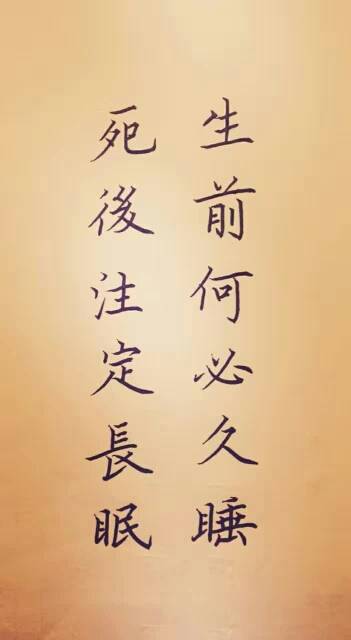 生前何必久睡
死後注定長眠